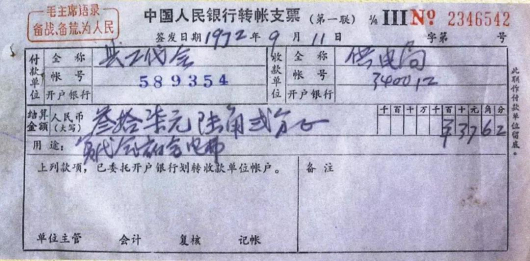 毛主席语录
备战、备荒、为人民
中国人民银行转帐支票 (第一联) III № 2346542
签发日期 1972年9月11日 字第 号
付款单位 全称 收款单位 全称 供电局
帐号 589354 帐号 340012
开户银行 开户银行
结算金额 人民币(大写) 叁拾柒元陆角贰分 千百十万千百十元角分 ¥3762
用途:
上列款项,已委托开户银行划转收款单位帐户。 备注
单位主管 会计 复核 记帐
此联作付款单位留底。